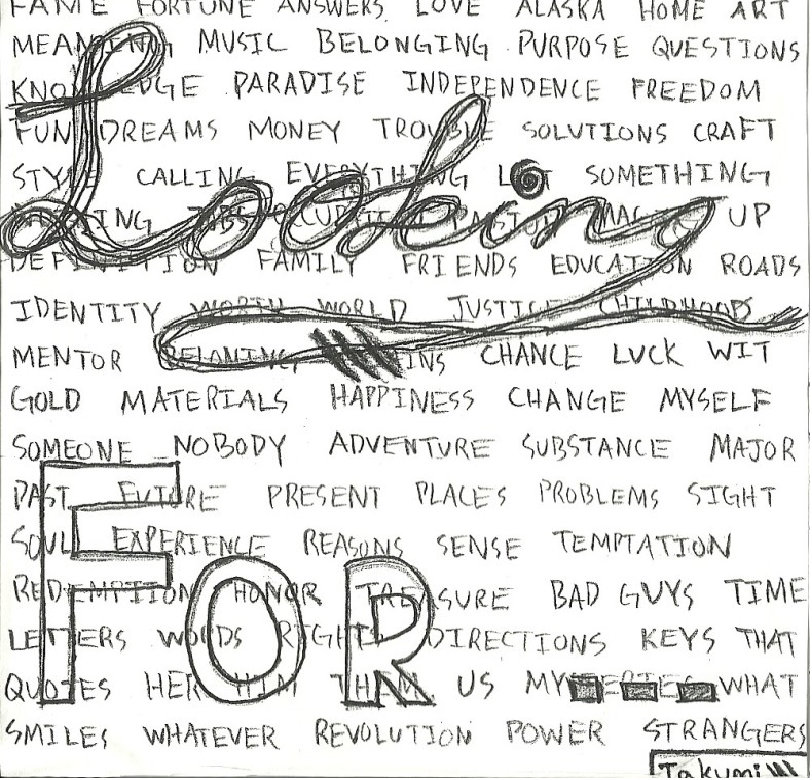 FAME FORTUNE ANSWERS LOVE ALASKA HOME ART
MEANING MUSIC BELONGING PURPOSE QUESTIONS
KNOWLEDGE PARADISE INDEPENDENCE FREEDOM
FUN DREAMS MONEY TROUBLE SOLUTIONS CRAFT
STYLE CALLING EVERYTHING SOMETHING
Looking
UP
DEFINITION FAMILY FRIENDS EDUCATION ROADS
IDENTITY WORTH WORLD JUSTICE CHILDHOODS
MENTOR CHANCE LUCK WIT
GOLD MATERIALS HAPPINESS CHANGE MYSELF
SOMEONE NOBODY ADVENTURE SUBSTANCE MAJOR
PAST FUTURE PRESENT PLACES PROBLEMS SIGHT
SOUL EXPERIENCE REASONS SENSE TEMPTATION
FOR
REDEMPTION HONOR TREASURE BAD GUYS TIME
LETTERS WORDS RIGHTS DIRECTIONS KEYS THAT
QUOTES HER HIM THEM US MYSTERIES WHAT
SMILES WHATEVER REVOLUTION POWER STRANGERS
Takumi